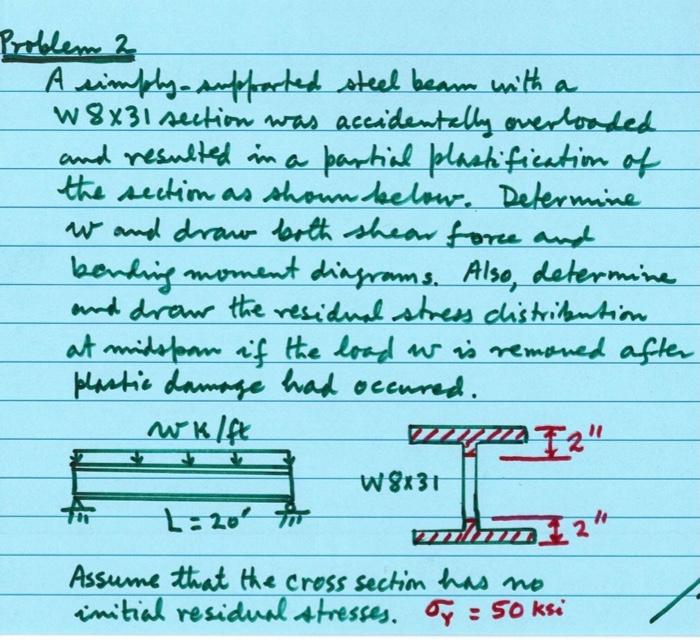 Problem 2
A simply-supported steel beam with a
W8x31 section was accidentally overloaded
and resulted in a partial plastification of
the section as shown below. Determine
w and draw both shear force and
bending moment diagrams. Also, determine
and draw the residual stress distribution
at midspan if the load w is removed after
plastic damage had occured.
w K/ft
2"
W8x31
L = 20'
2"
Assume that the cross section has no
initial residual stresses. σY = 50 ksi